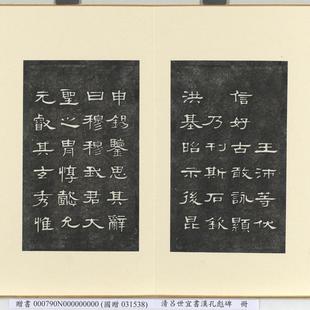 王沛等伏
信好古敢詠顯
乃刊斯石欽
洪基昭示後昆
申錫鑒思其辭
曰穆穆我君大
聖之胄惇懿允
元叡其玄秀惟
贈書 000790N000000000 (國贈 031538) 清呂世宜書漢孔彪碑 冊